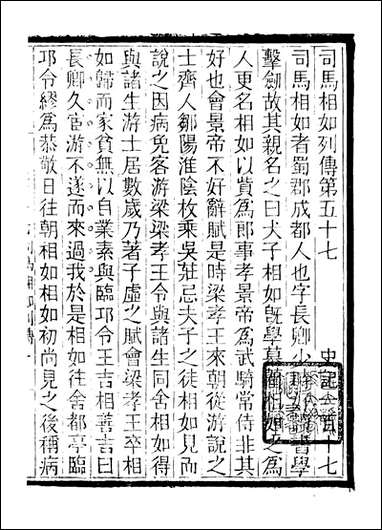 司馬相如列傳第五十七 史記一百一十七
司馬相如者蜀郡成都人也字長卿少時好讀書學
擊劒故其親名之曰犬子相如旣學慕藺相如之爲
人更名相如以貲爲郎事孝景帝爲武騎常侍非其
好也會景帝不好辭賦是時梁孝王來朝從游說之
士齊人鄒陽淮陰枚乘吳莊忌夫子之徒相如見而
說之因病免客游梁梁孝王令與諸生同舍相如得
與諸生游士居數歲乃著子虛之賦會梁孝王卒相
如歸而家貧無以自業素與臨邛令王吉相善吉曰
長卿久宦游不遂而來過我於是相如往舍都亭臨
邛令繆爲恭敬日往朝相如相如初尚見之後稱病